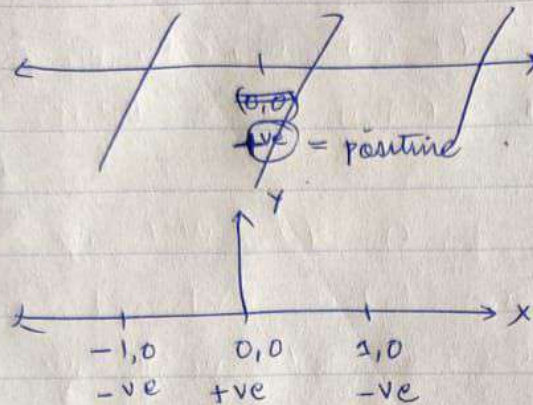 (0,0)
+ve = positive
Y
X
-1,0 0,0 1,0
-ve +ve -ve